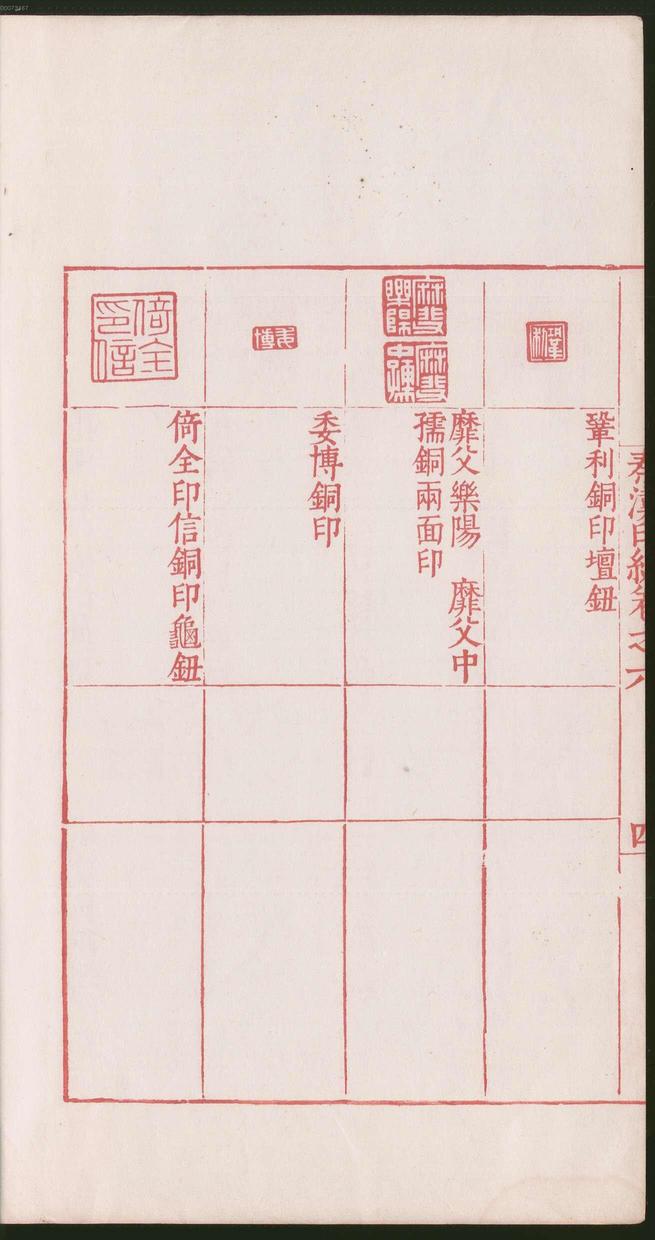 秦漢印統卷之六
四
鞏利銅印壇鈕
靡父樂陽　靡父中
孺銅兩面印
委博銅印
倚全印信銅印龜鈕
倚全
印信